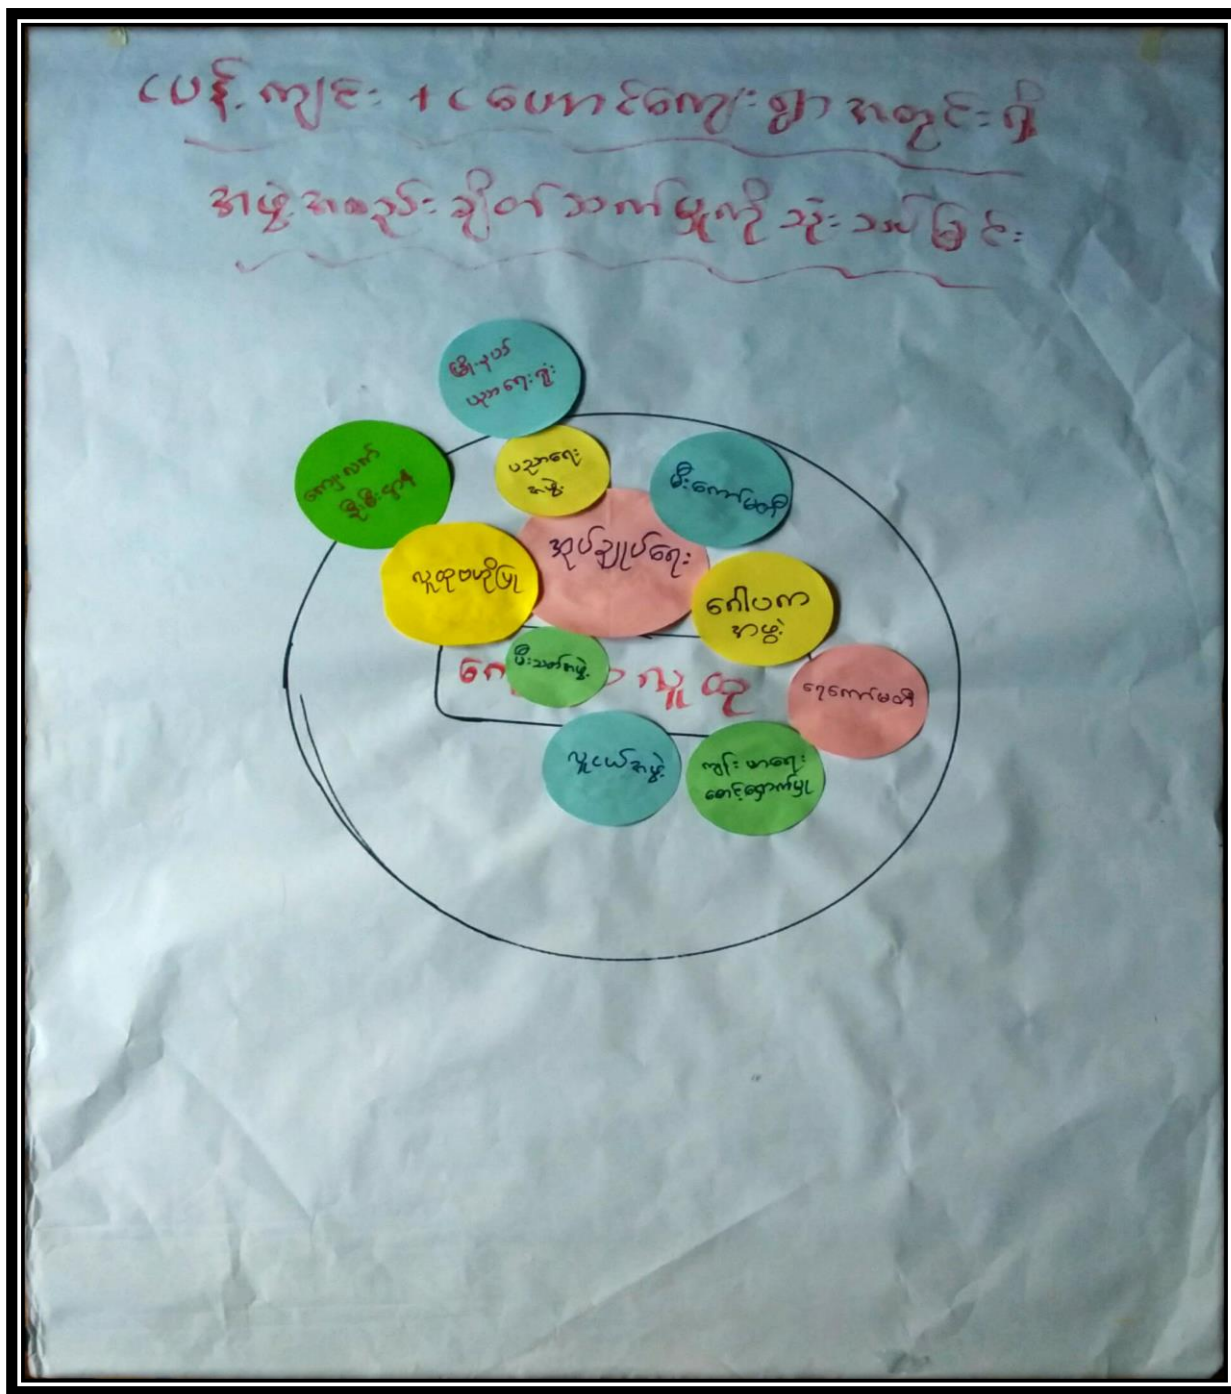 ငပန်းကျင်း + ငပေါင်ကျေးရွာအတွင်းရှိ
အဖွဲ့အစည်းချိတ်ဆက်မှုကိုသုံးသပ်ခြင်း
မြို့နယ်
ပညာရေးရုံး
ကျေးလက်
မီးစီးဌာန
ပညာရေး
အဖွဲ့
မီးကော်မတီ
အုပ်ချုပ်ရေး
လူထုဗဟိုပြု
ဂေါပက
အဖွဲ့
မီးသတ်အဖွဲ့
လူထု
ရေကော်မတီ
လူငယ်အဖွဲ့
ကျန်းမာရေး
စောင့်ရှောက်မှု